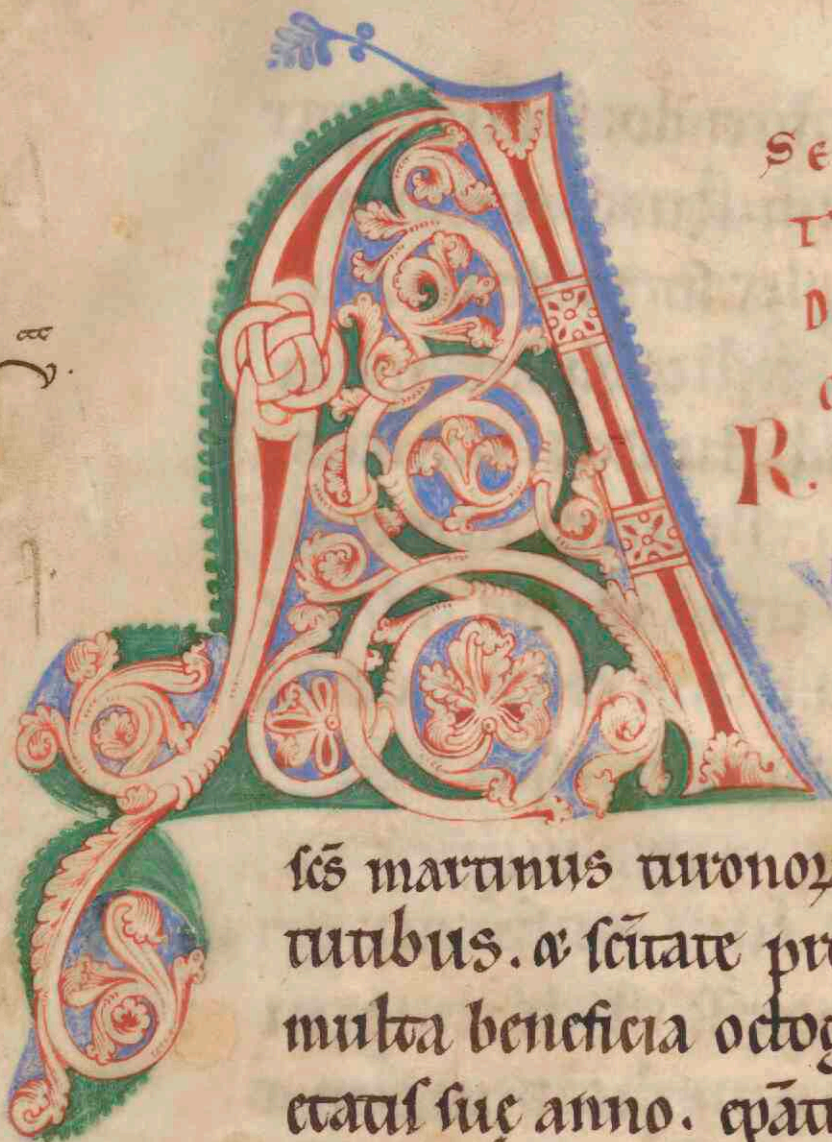 A
SE
T
D
R.
ſcs̄ martinus turonoꝝ
tutibus. & ſcītate pre
multa beneficia octog
etatiſ ſuę anno. ep̄at